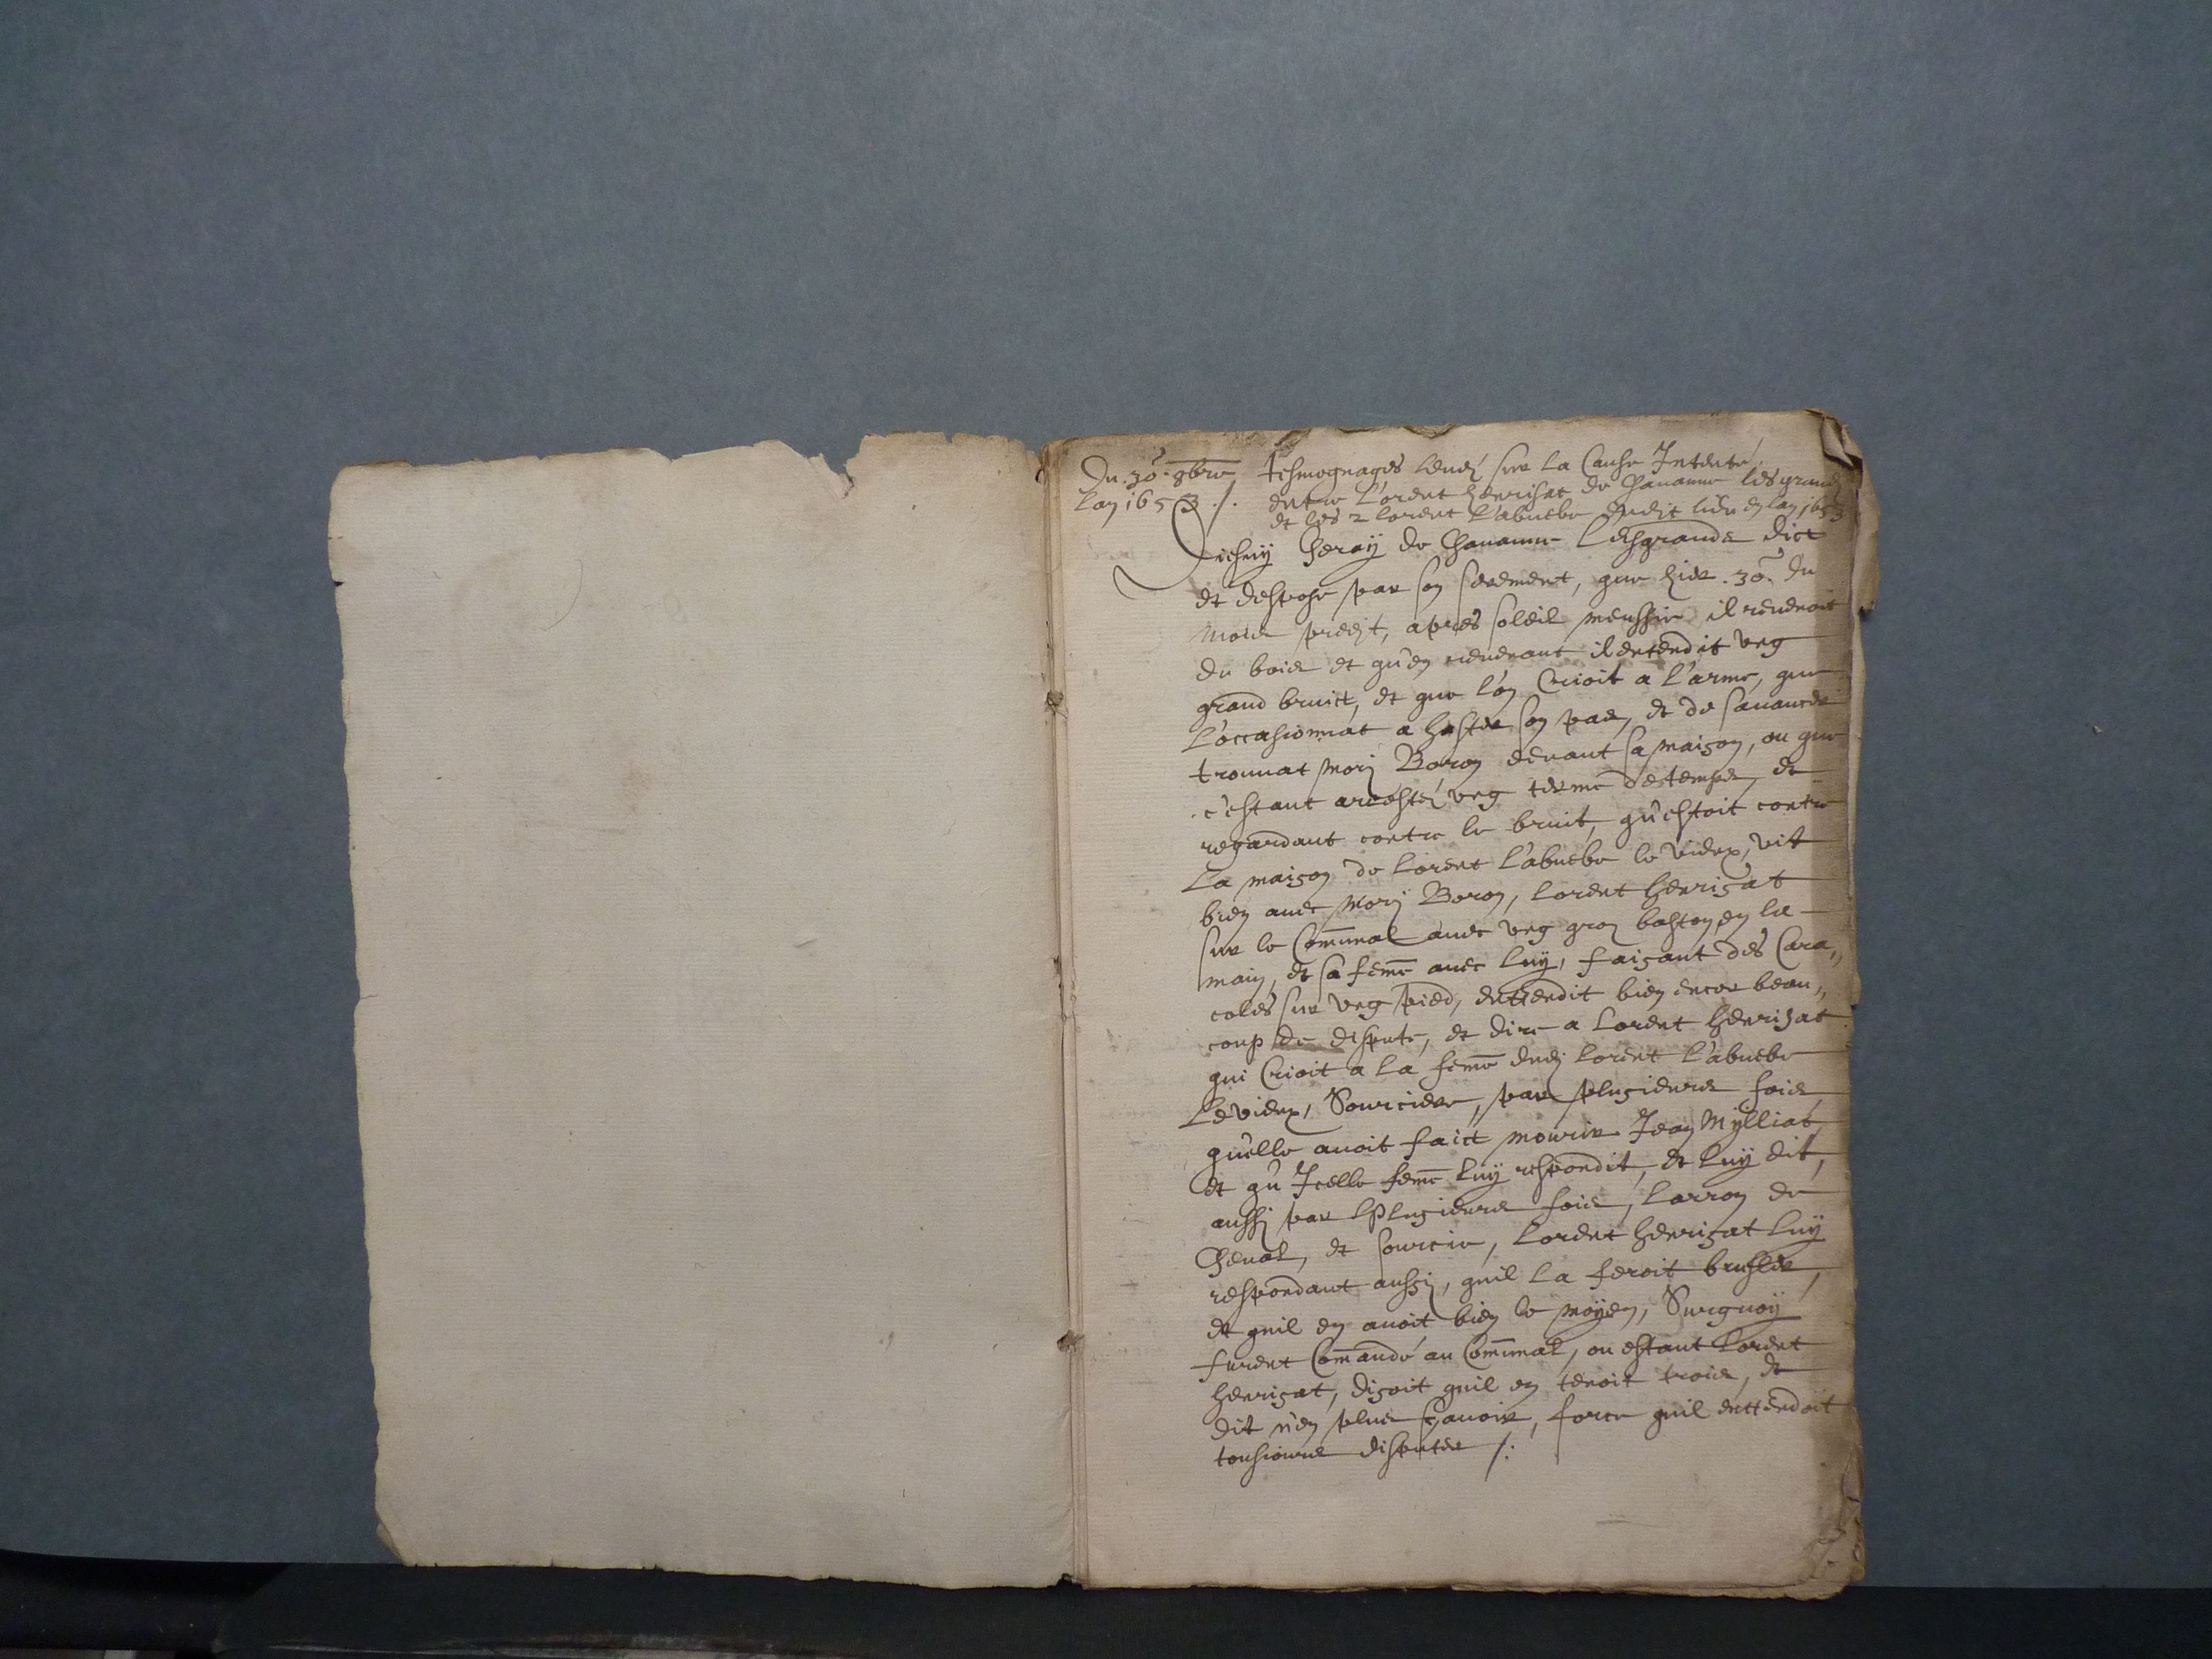 Du .30.e 8bre
Lan 1653 ./.
tesmognages leuéz sur la Cause Intenté
entre Lorent henrisat de Chauanne les grands
et les 2 lorent Labuebe dudit lieu en lan 1653
Cheray de Chauanne Lesgrands dict
et despose par son serement, que hier .30.e du
mois predit, apres soleil meussir il reuenoit
du bois et qu'en reuenant il entendit vng
grand bruict, et que l'on Crioit a l'arme, que
l'occasionnat a haster son pas, et de sauancer
trouuat Mori Boron deuant sa maison, ou que
c'estant arresté vng terme de temps, et
regardant contre le bruit, qu'estoit contre
La maison de Lorent Labuebe le vieux, vit
bien auec Mori Boron, Lorent henrisat
sur le Comunal auec vng gros baston en la
main, et sa feme auec luÿ, faisant des Cara„
coles sur vng pied, enttendit bien encor beau„
coup de dispute, et dire a Lorent henrisat
qui Crioit a la feme dudj Lorent Labuebe
Le vieux, Sourciere, par plusieurs fois
qu'elle auoit faict mourir Jean Mÿlliat,
et qu'Icelle feme luÿ respondit, et luÿ dit,
aussj par plusieurs fois, Larron de
Cheual, et sourcie, Lorent henrisat luÿ
respondant aussj, quil la feroit brusler,
et quil en auoit bien le moÿen, Surquoÿ
furent Comandé au Comunal, ou estant Lorent
henrisat, disoit quil en tenoit trois, et
dit n'en plus sçauoir, force quil enttendoit
tousiours disputer /: